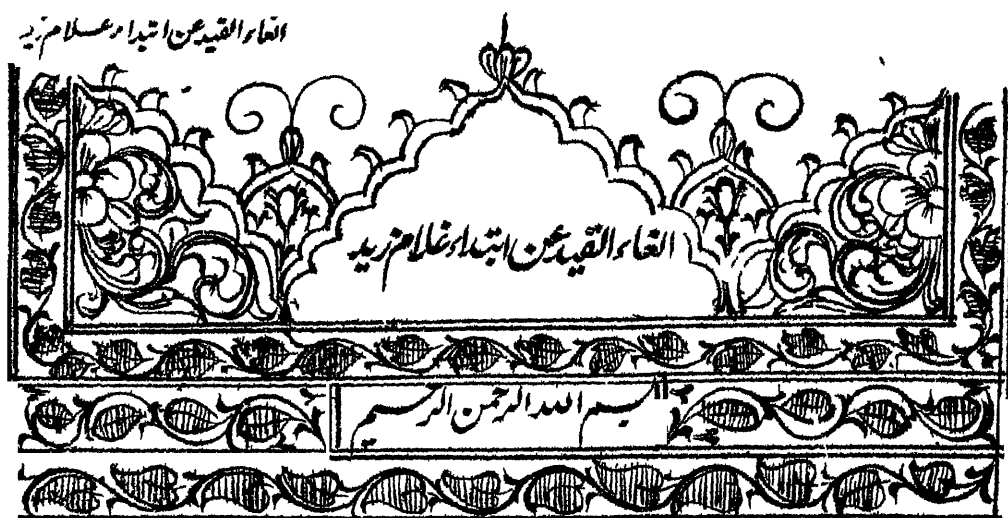 الغاء القيد عن ابتداء غلام زيد
الغاء القيد عن ابتداء غلام زيد
بسم الله الرحمن الرحيم